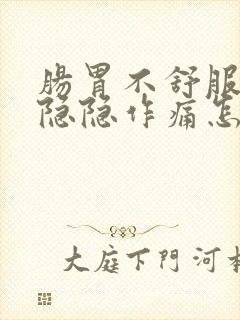 腸胃不舒服
隐隐作痛怎
大庭下門河